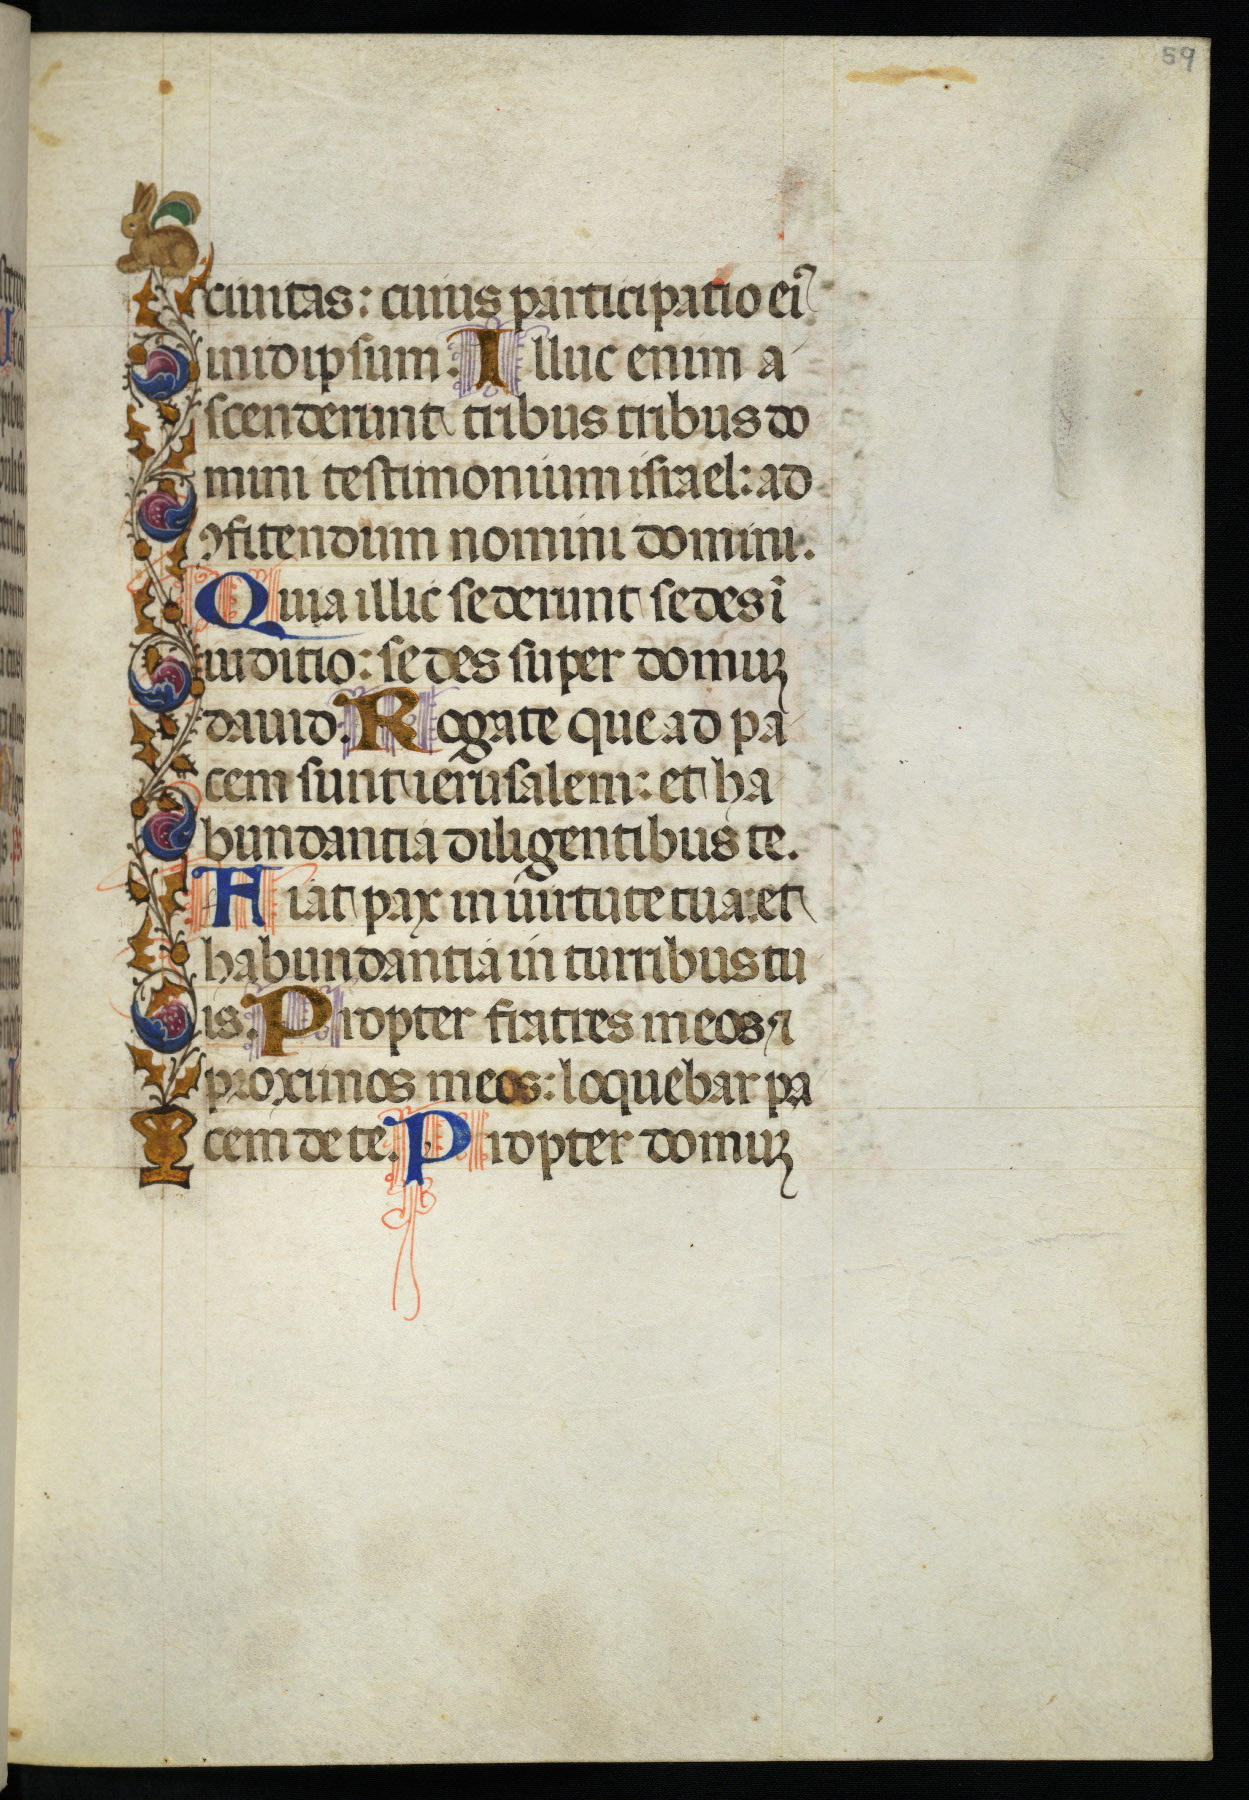 59
ciuitas: cuius participatio ei⁹
inidipsum. Illuc enim a
scenderunt tribus tribus do
mini testimonium israel: ad
ꝯfitendum nomini domini.
Quia illic sederunt sedes ī
iuditio: sedes super domuʒ
dauid. Rogate que ad pa
cem sunt ierusalem: et ha
bundantia diligentibus te.
Fiat pax in uirtute tua: et
habundantia in turribus tu
is. Propter fratres meos ⁊
proximos meos: loquebar pa
cem de te. Propter domuʒ